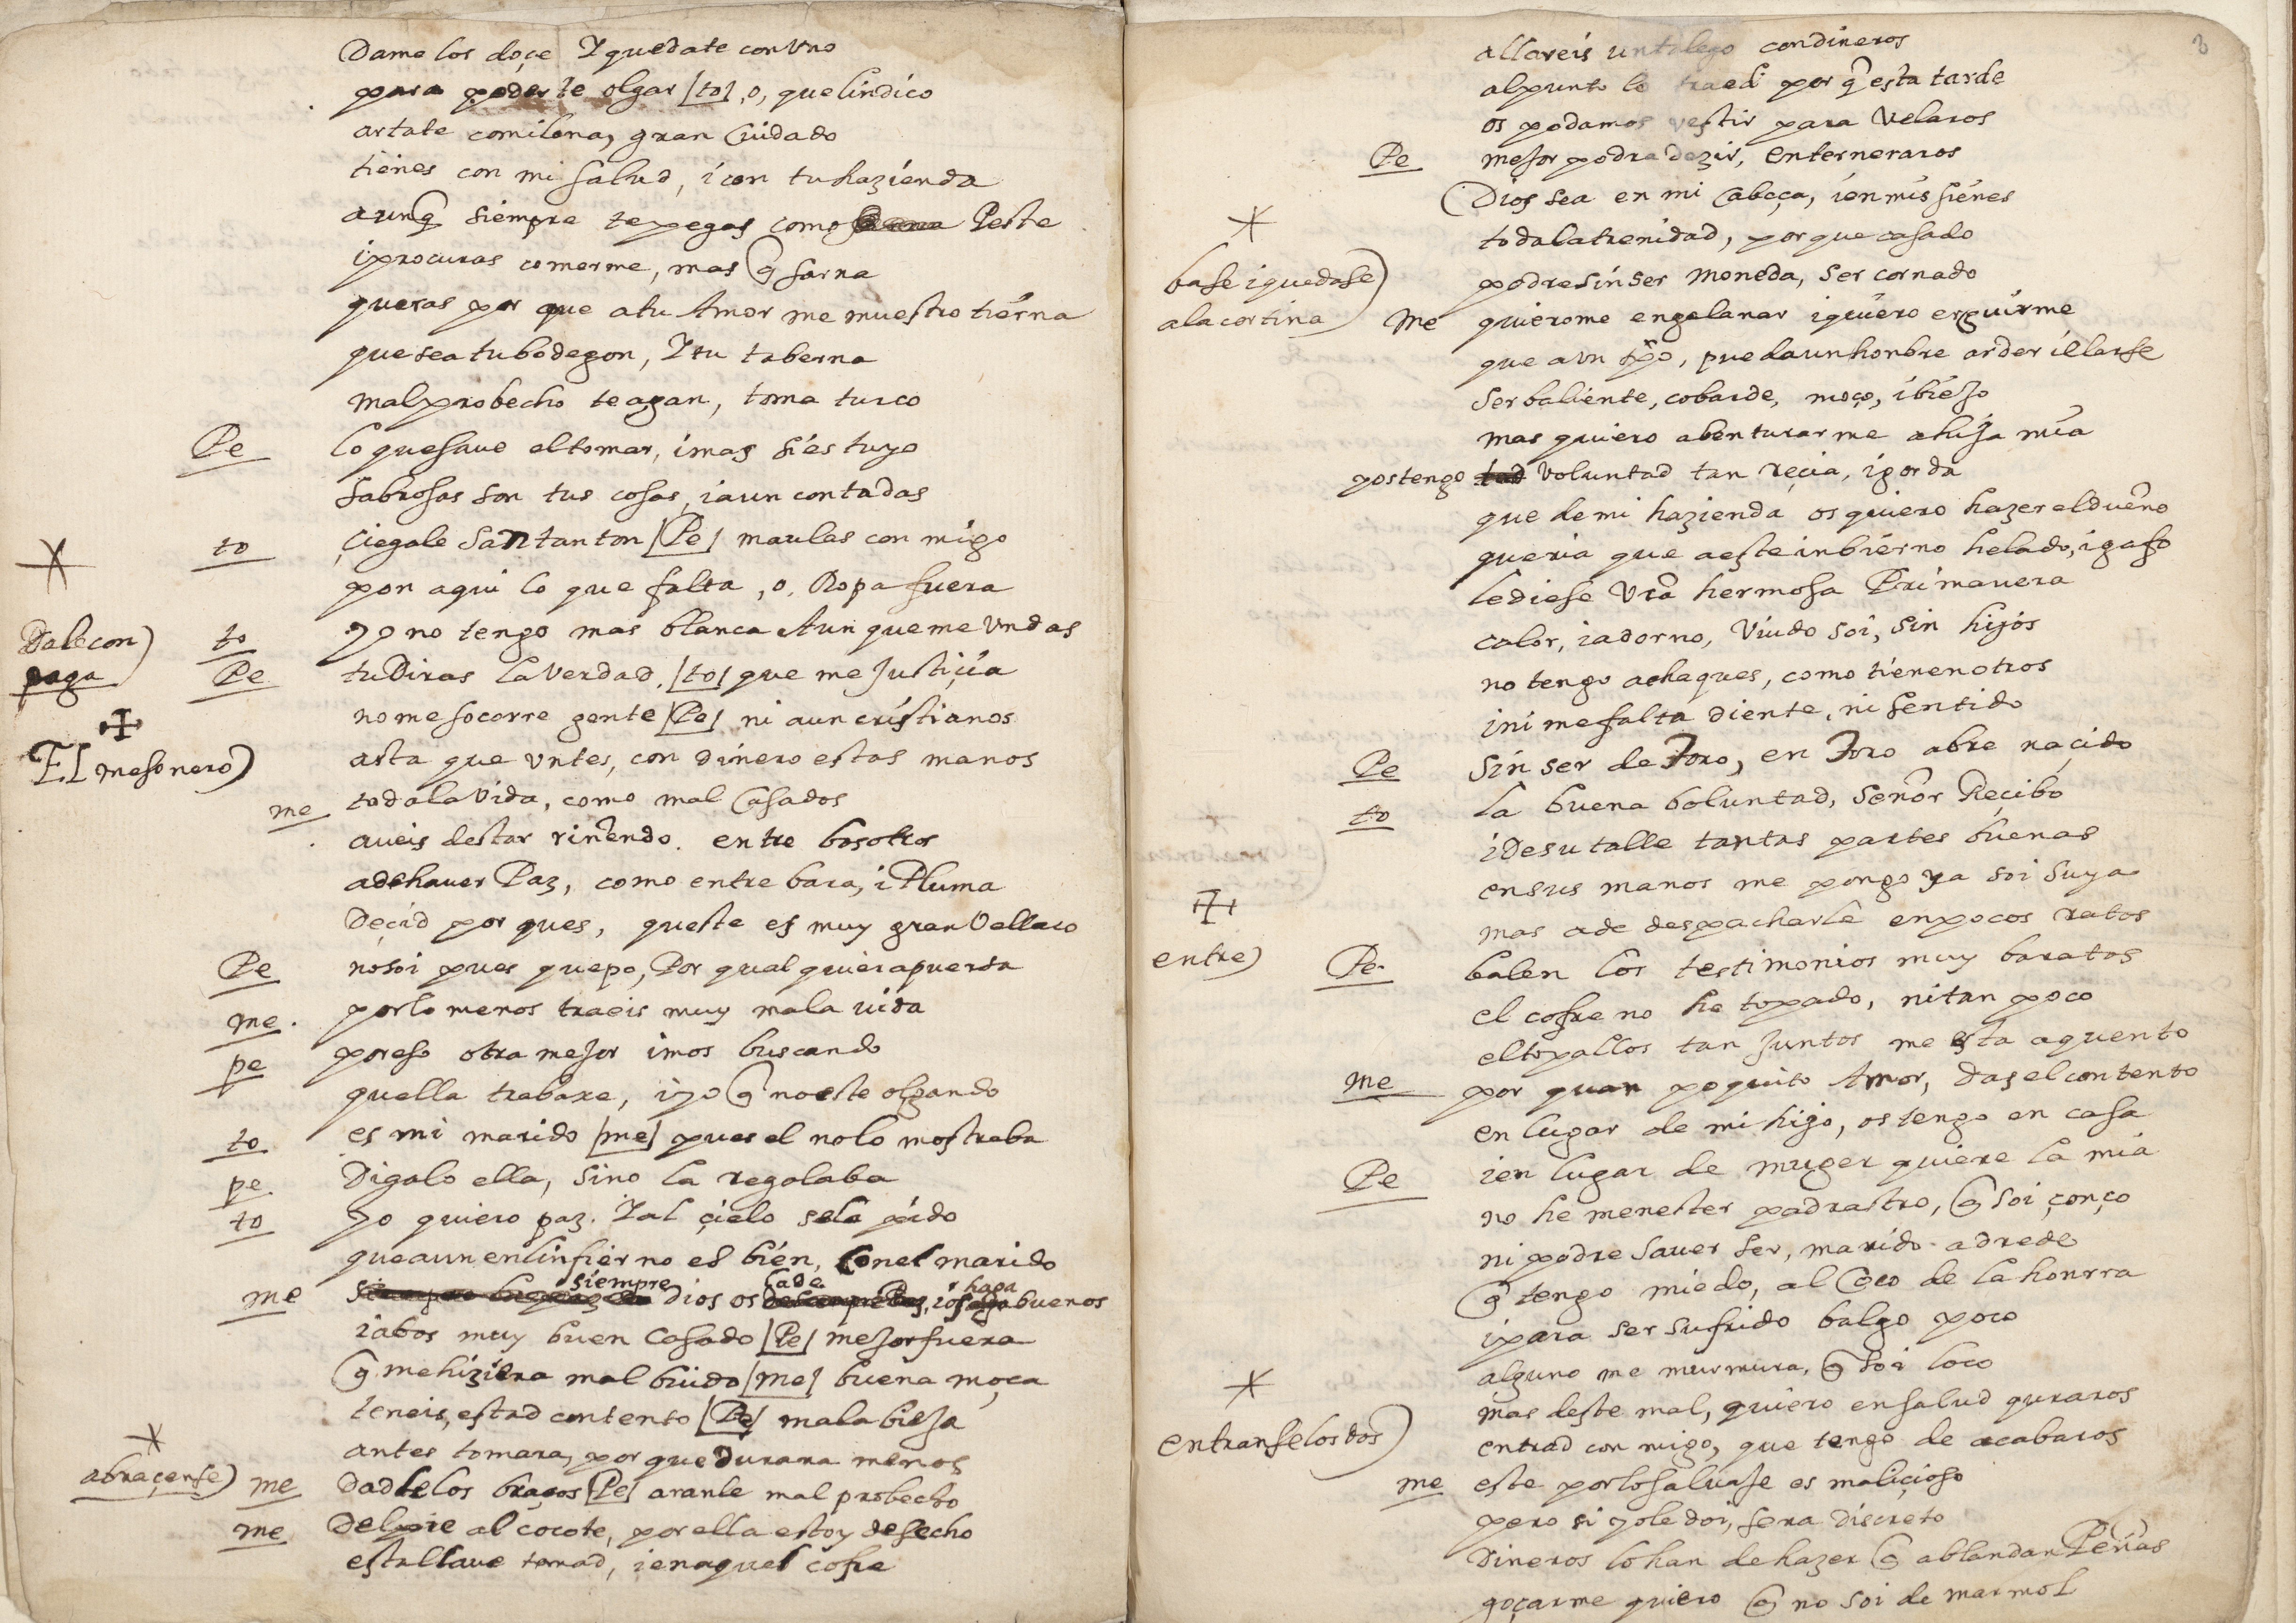 Dame los doçe Y quedate con Vno
para poderte olgar |to| o, que lindico
artate comilona, gran Cuidado
tienes con mi salud, i con tu hazienda
aunq siempre te pegas como Peste
i procuras comerme, mas q sarna
queras por que a tu Amor me muestro tierna
que sea tu bodegon, Y tu taberna
mal probecho te agan, toma turco
Pe lo que saue el tomar, i mas si es tuyo
sabrosas son tus cosas, i aun contadas
to çiegale San tanton |Pe| maulas con migo
pon aqui lo que falta, o, Ropa fuera
Dale con)
paga
to yo no tengo mas blanca Aun que me Vndas
Pe tu Diras la Verdad. |to| que me justiçia
no me socorre gente |Pe| ni aun cristianos
asta que Vntes, con dinero estas manos
El mesonero)
me toda la Vida, como mal Casados
aueis destar riñendo. entre bosotros
a de hauer Paz, como entre bara, i Pluma
Deçid por ques, queste es muy gran Vellaco
Pe no soi pues quepo, Por qual quiera puerta
me. por lo menos traeis muy mala uida
pe por eso otra mejor imos buscando
quella trabaxe, i yo q no este olgando
to es mi marido |me| pues el no lo mostraba
pe Digalo ella, sino la regalaba
to yo quiero paz. Y al çielo sela pido
que aun en linfierno es bien, con el marido
me siempre dios os haga buenos
i a bos muy buen Casado |Pe| mejor fuera
q me hiziera mal biudo |me| buena moça
teneis, estad contento |Pe| mala bieja
antes tomara, por que durara menos
abraçense)
me Dadle los braços |Pe| aranle mal probecho
me Del pie al cocote, por ella estoy desecho
esta llaue tomad, i en aquel cofre
3
allareis un talego con dineros
al punto lo traed por q esta tarde
os podamos vestir para Velaros
Pe mejor podra dezir, enterneraros
Dios sea en mi Cabeça, i en mis sienes
toda la trenidad, por que casado
podre sin ser moneda, ser cornado
base i quedase)
a la cortina
me quierome engalanar i quiero erguirme
que a un tpo, pueda un honbre arder i elarse
ser baliente, cobarde, moço, i biejo
mas quiero abenturarme a hija mia
pos tengo voluntad tan reçia, i gorda
que de mi hazienda os quiero hazer el dueño
queria que a este inbierno helado, i gafo
le diese Vra hermosa Primauera
calor, i adorno, Viudo soi, sin hijos
no tengo achaques, como tienen otros
i ni me falta diente, ni sentido
Pe sin ser de Toro, en Toro abre naçido
to la buena boluntad, señor Reçibo
i De su talle tantas partes buenas
en sus manos me pongo ya soi suya
mas a de despacharle en pocos ratos
entre)
Pe. balen los testimonios muy baratos
el cofre no he topado, ni tan poco
el topallos tan juntos me esta a quento
me por quan poquito Amor, das el contento
en lugar de mi hijo, os tengo en casa
Pe i en lugar de muger quiere la mia
no he menester padrastro, q soi çonço
ni podre sauer ser, marido adrede
q tengo miedo, al Coco de la honrra
i para ser sufrido balgo poco
alguno me murmura, q soi loco
mas deste mal, quiero en salud quraros
entranse los dos)
entrad con migo, que tengo de acabaros
me este por lo saluaje es maliçioso
pero si yo le doi, sera discreto
Dineros lo han de hazer q ablandan Peñas
goçarme quiero q no soi de marmol